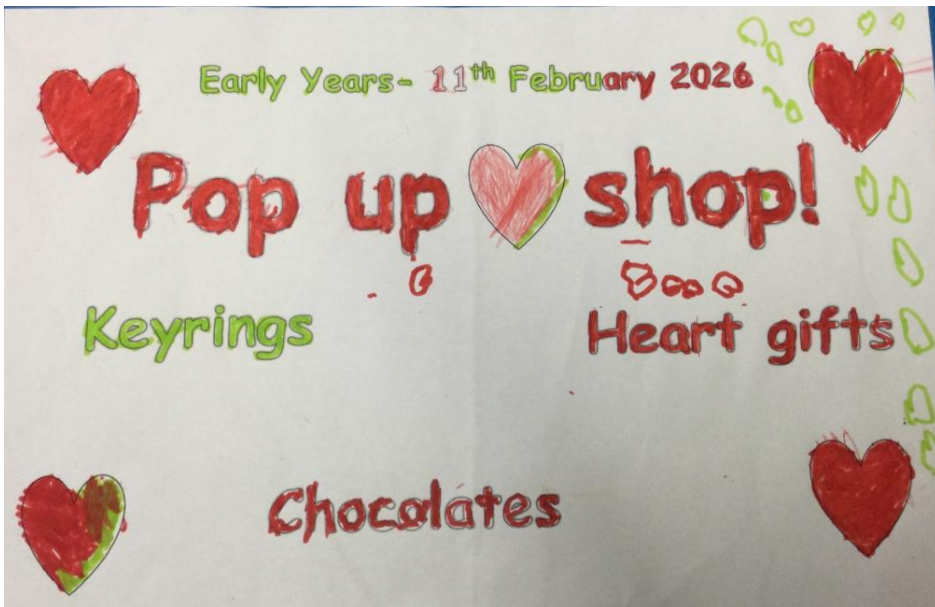 Early Years- 11th February 2026
Pop up shop!
Keyrings
Heart gifts
Chocolates